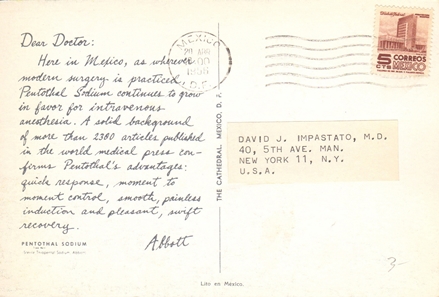 Dear Doctor:
Here in Mexico, as wherever
modern surgery is practiced,
Pentothal Sodium continues to grow
in favor for intravenous
anesthesia. A solid background
of more than 2380 articles published
in the world medical press con-
firms Pentothal's advantages:
quick response, moment to
moment control, smooth, painless
induction and pleasant, swift
recovery.
Abbott
PENTOTHAL SODIUM
THE CATHEDRAL, MEXICO, D. F.
MEXICO
D.F.
5
CTS
CORREOS
MEXICO
DAVID J. IMPASTATO, M.D.
40, 5TH AVE. MAN.
NEW YORK 11, N.Y.
U.S.A.
3-
Lito en México.